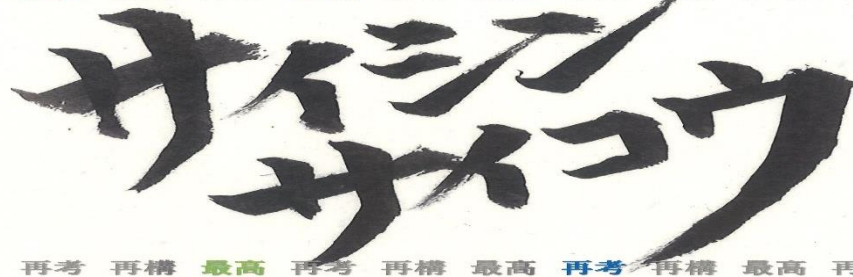 サイシン
サイコウ
再考 再構 最高 再考 再構 最高 再考 再構 最高